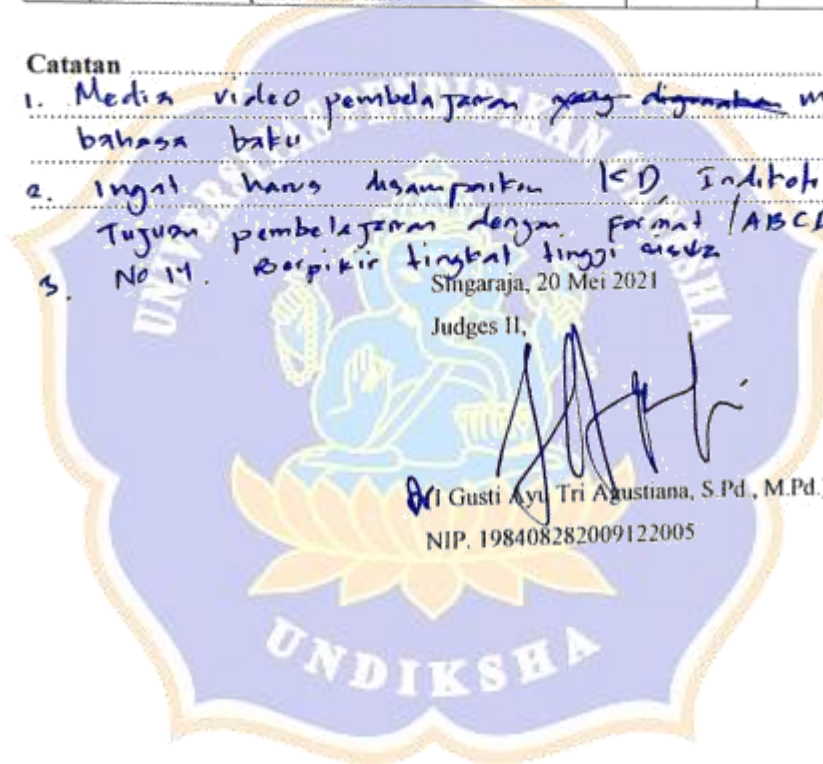 Catatan
1. Media video pembelajaran yang digunakan m
bahasa baku
2. Ingat harus disampaikan KD Indikato
Tujuan pembelajaran dengan format ABCD
3. No 14. Berpikir tingkat tinggi siswa
Singaraja, 20 Mei 2021
Judges II,
Dr I Gusti Ayu Tri Agustiana, S.Pd., M.Pd.
NIP. 198408282009122005
UNIVERSITAS PENDIDIKAN GANESHA
UNDIKSHA